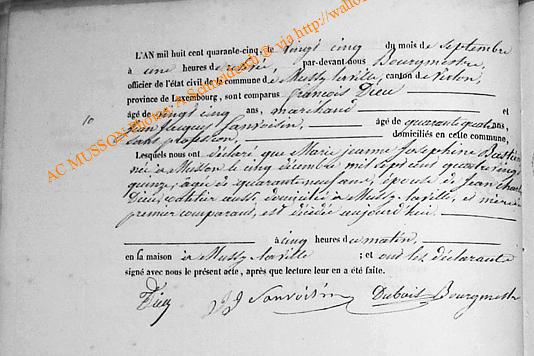 L'AN mil huit cent quarante-cinq, le vingt cinq du mois de Septembre
à une heures de relevé, par-devant-nous Bourgmestre
officier de l'état civil de la commune de Mussy la ville canton de Virton,
province de Luxembourg, sont comparus françois Dieu
âgé de vingt cinq ans, marchand et
10
Jean Jacques Sanvoisin, âgé de quarante quatre ans,
sans profession, domiciliés en cette commune,
Lesquels nous ont déclaré que Marie jeanne Josephine
née à Musson le cinq décembre mil sept cent quatre vingt
quinze, agée de quarante neuf ans, épouse de Jean
Dieu, aussi domicilié à Mussy-la-ville, et mère du
premier comparant, est décédée aujourd'hui
à cinq heures du matin,
en sa maison à Mussy la ville ; et ont les déclarants
signé avec nous le présent acte, après que lecture leur en a été faite.
Dieu JJ Sanvoisin Dubois Bourgmestre
AC MUSSON Photos: A Schneidesch @ via http://wallo